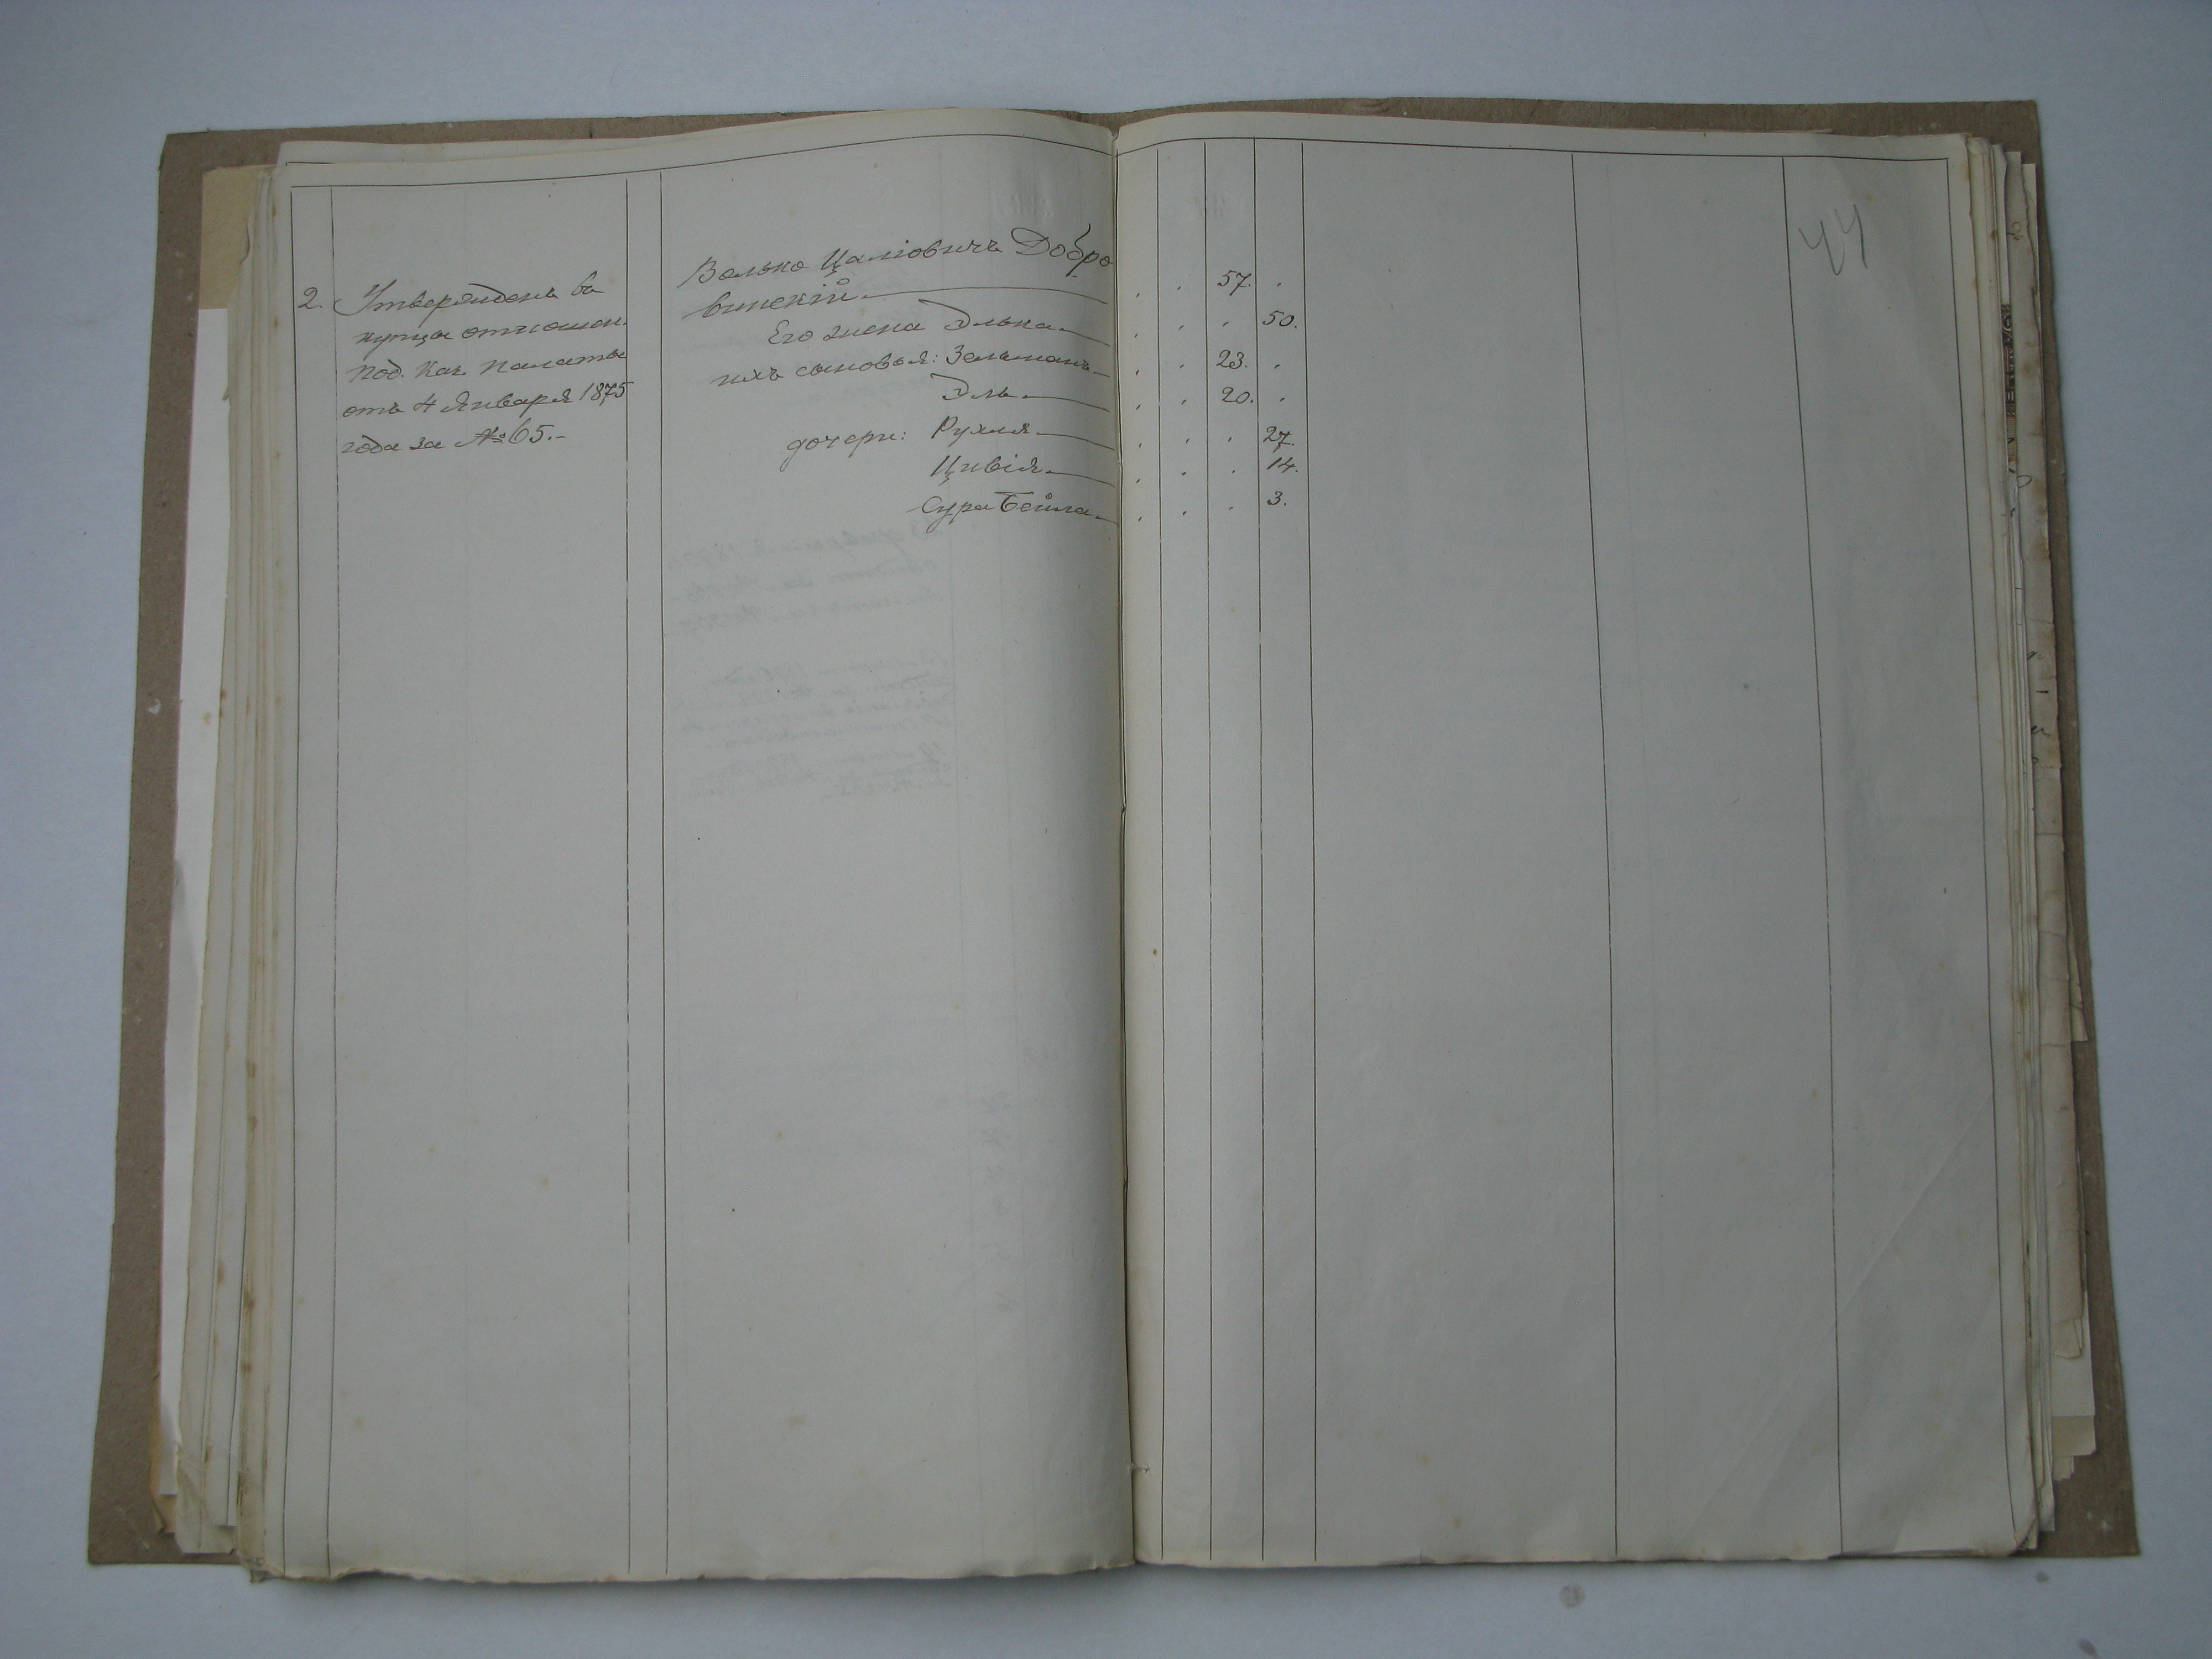 44
2. Утвержденъ въ
купцы отношен.
Под. Каз. Палаты
отъ 4 Января 1875
года за № 65.-
Волько Цалговичъ Добро
винскій 57.
Его жена Элька 50.
ихъ сыновья: Зельманъ 23.
Эль 20.
дочери: Рухля 27.
Цивія 14.
Сура Бейла 3.